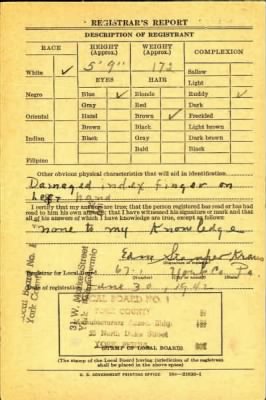 REGISTRAR'S REPORT
DESCRIPTION OF REGISTRANT
RACE HEIGHT (Approx.) WEIGHT (Approx.) COMPLEXION
White ✓ 5' 9" 172 Sallow
EYES HAIR Light
Negro Blue ✓ Blonde Ruddy ✓
Gray Red Dark
Oriental Hazel Brown ✓ Freckled
Brown Black Light brown
Indian Black Gray Dark brown
Bald Black
Filipino
Other obvious physical characteristics that will aid in identification
Damaged index finger on
Left hand
I certify that my answers are true; that the person registered has read or has had
read to him his own answers; that I have witnessed his signature or mark and that
all of his answers of which I have knowledge are true, except as follows:
none to my Knowledge
Registrar for Local Board 67-1 York Co. Pa.
Date of registration June 30, 1942
LOCAL BOARD NO. 1
YORK COUNTY
25 North Duke Street
YORK PENNA
STAMP OF LOCAL BOARD
Local Board No. 1
York County
(The stamp of the Local Board having jurisdiction of the registrant
shall be placed in the above space)
U. S. GOVERNMENT PRINTING OFFICE 16—21630-1